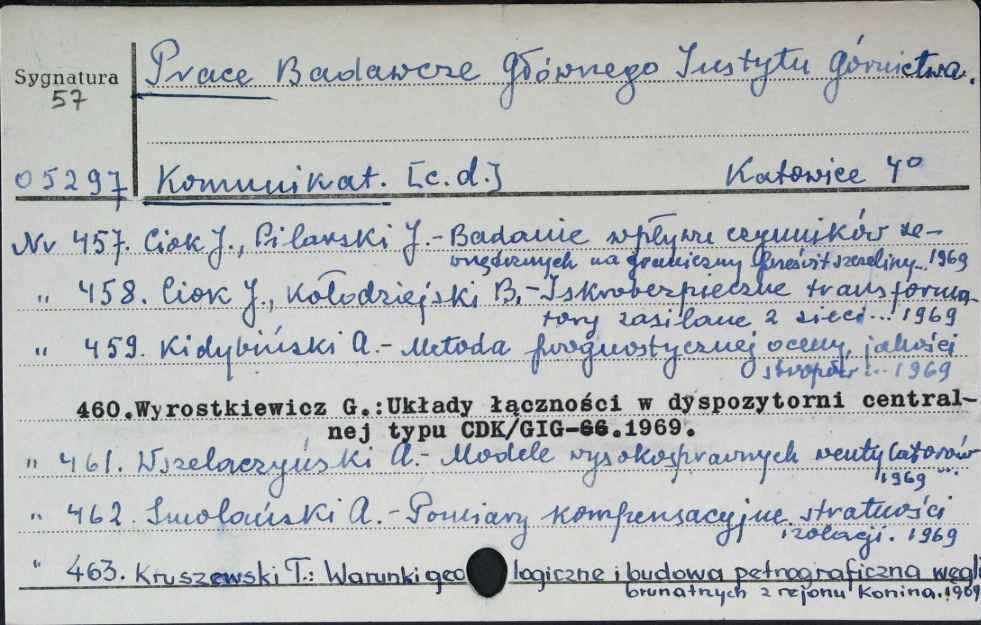 Sygnatura
57
Prace Badawcze Głównego Instytutu Górnictwa.
05297
Komunikat. [c.d.] Katowice 4°
Nr 457. Ciok J., Pilarski J.- Badanie wpływu czynników ze-
wnętrznych na graniczny prześwit szczeliny...1969
" 458. Ciok J., Kołodziejski B.- Iskrobezpieczne transforma-
tory zasilane z sieci...1969
" 459. Kidybiński A.- Metoda prognostycznej oceny jakości
stropów...1969
460.Wyrostkiewicz G.:Układy łączności w dyspozytorni central-
nej typu CDK/GIG-66.1969.
" 461. Wszelaczyński A.- Modele wysokosprawnych wentylatorów
1969 ...
" 462. Smolański A.- Pomiary kompensacyjne stratności
izolacji. 1969
" 463. Kruszewski T.: Warunki geologiczne i budowa petrograficzna węgli
brunatnych z rejonu Konina.1969